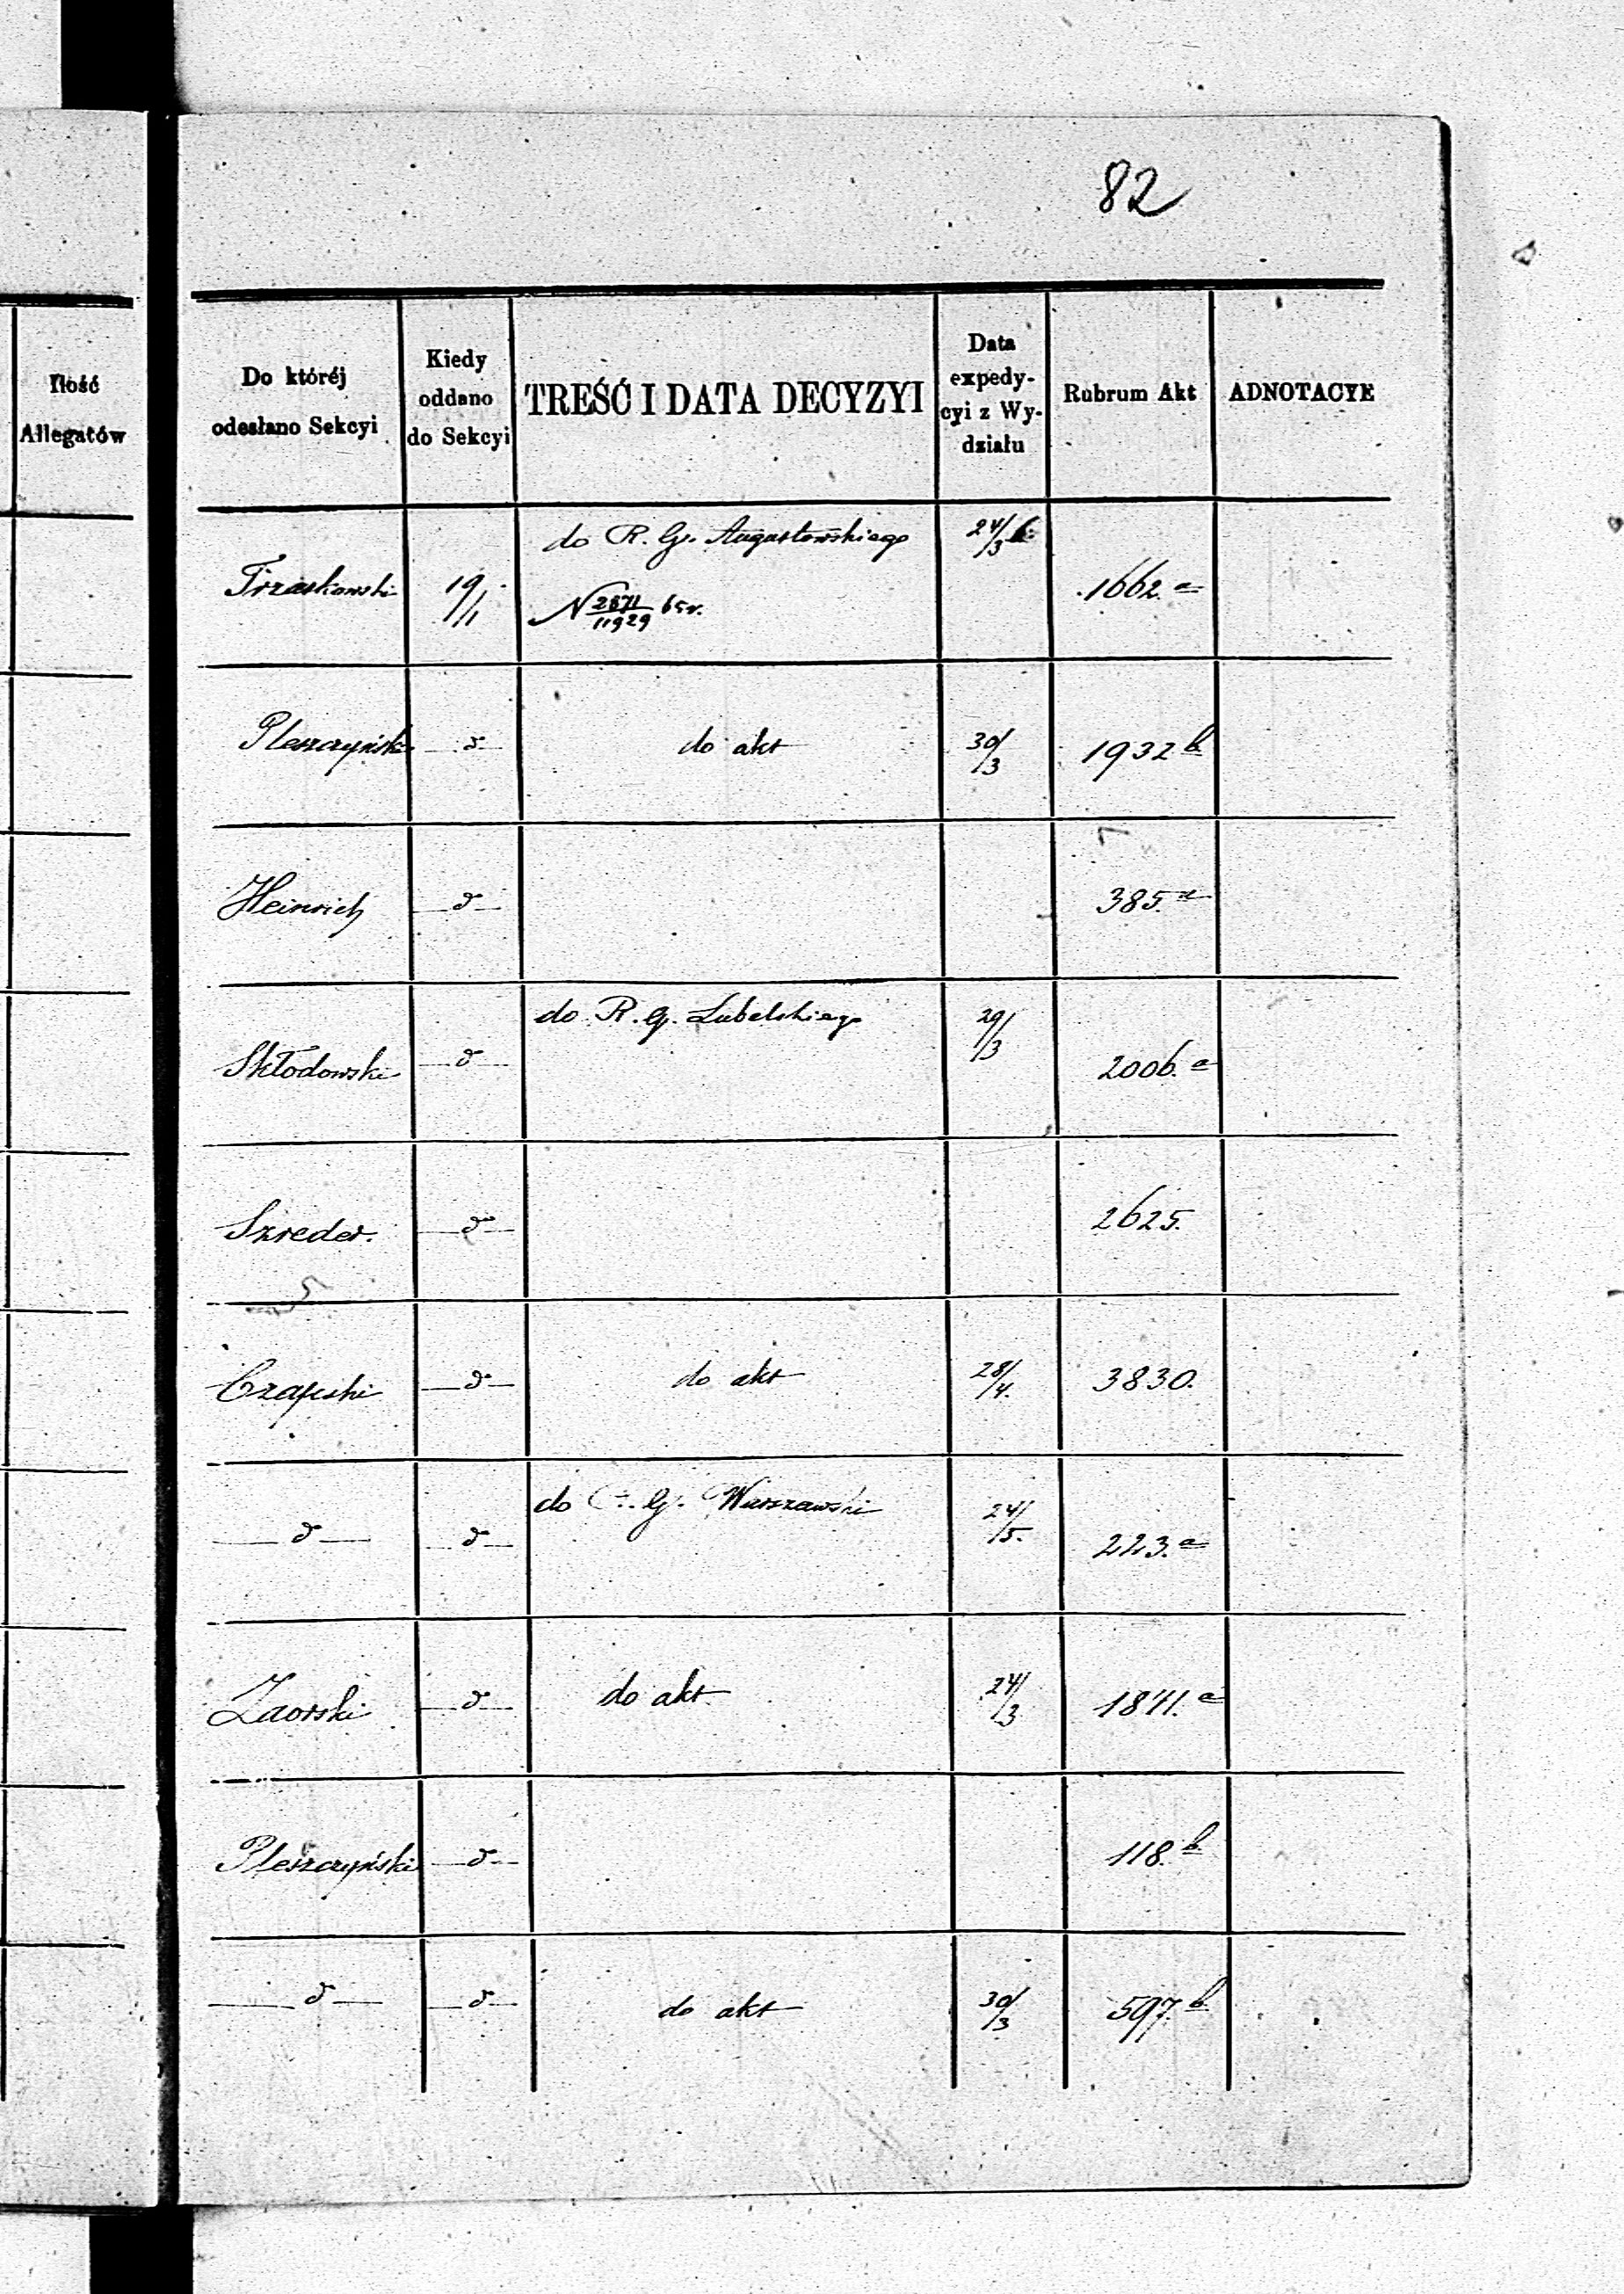 82
Ilość
Allegatów
Do któréj
odesłano Sekcyi
Kiedy
oddano
do Sekcyi
TREŚĆ I DATA DECYZYI
Data
expedy-
cyi z Wy-
działu
Rubrum Akt
ADNOTACYE
do R. G. Augustowskiego 24/3
Trzaskowski 19/1 1662.a
N 2671/11929 65 r.
Pleszczyński — d — do akt 30/3 1932 b
Heinrich — d — 385. a
do R. G. Lubelskiego 29/3
Skłodowski — d — 2006. a
Szreder. — d — 2625.
Czajecki — d — do akt 28/4. 3830.
do G. Warszawski 24/5.
— d — — d — 223. a
Zaorski — d — do akt 24/3 1871. a
Pleszczyński — d — 118. b
— d — — d — do akt 30/3 597. b